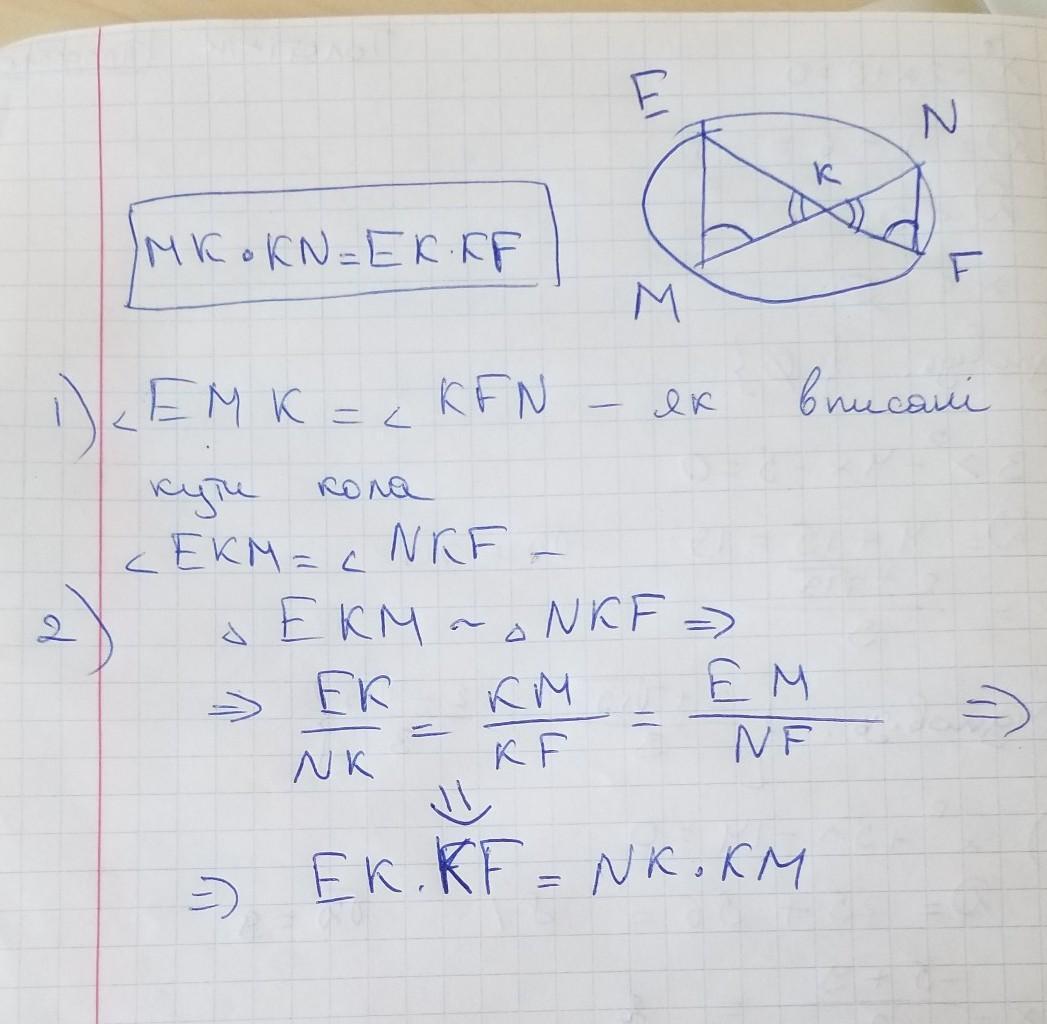 E
N
K
MK · KN = EK · KF
M
F
1) ∠EMK = ∠KFN – як вписані
кути кола
∠EKM = ∠NKF –
2) △EKM ~ △NKF ⇒
⇒ EK/NK = KM/KF = EM/NF ⇒
⇓
⇒ EK · KF = NK · KM